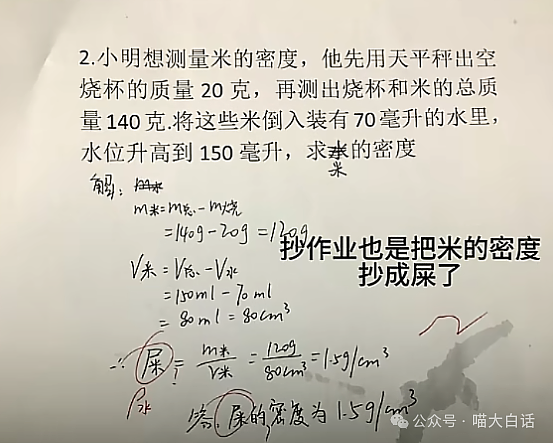 2.小明想测量米的密度，他先用天平秤出空
烧杯的质量 20 克，再测出烧杯和米的总质
量 140 克.将这些米倒入装有 70 毫升的水里，
水位升高到 150 毫升，求水的密度
米
解：m米
m米=m总-m烧
=140g-20g=120g
抄作业也是把米的密度
抄成屎了
V米=V总-V水
=150ml-70ml
=80ml=80cm³
∴屎=m米/V米=120g/80cm³=1.5g/cm³
ρ米
答：屎的密度为1.5g/cm³
公众号·喵大白话